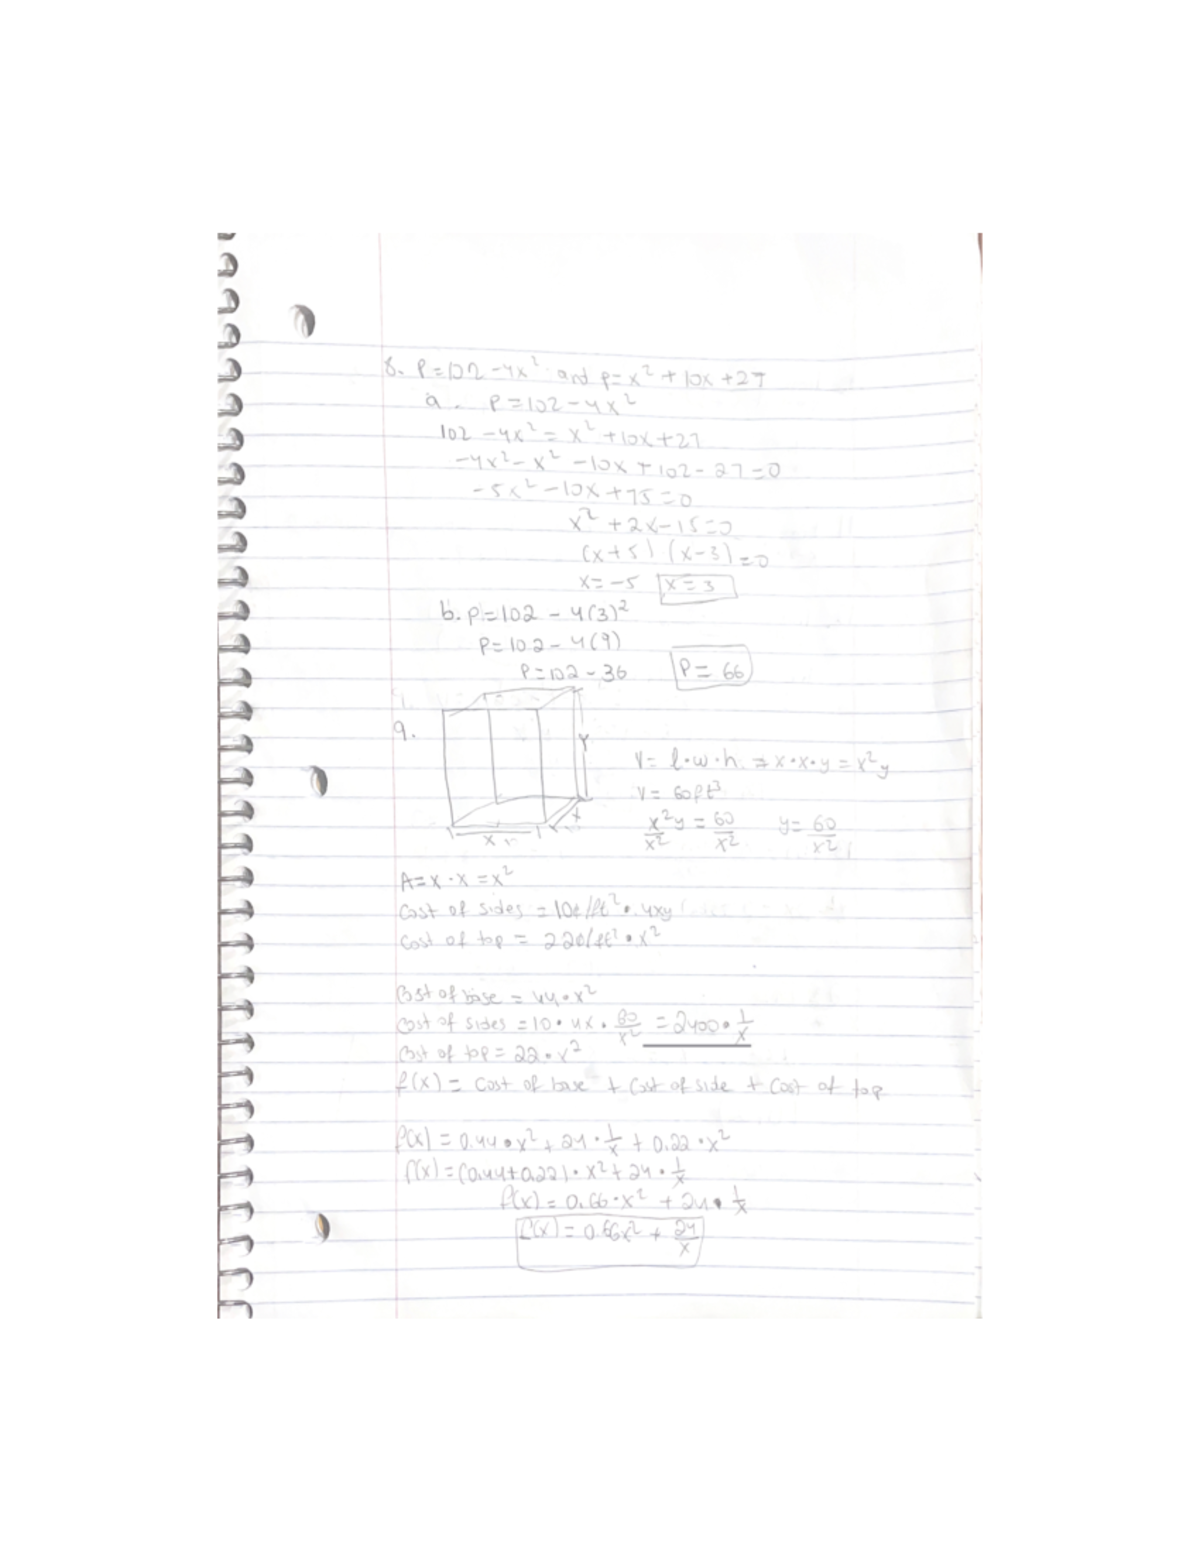 8. P=102-4x² and p=x²+10x+27
a. P=102-4x²
102-4x²=x²+10x+27
-4x²-x²-10x+102-27=0
-5x²-10x+75=0
x²+2x-15=0
(x+5)(x-3)=0
x=-5 x=3
b. p=102-4(3)²
P=102-4(9)
P=102-36 P=66
9.
y
x
x
V=l·w·h ⇒ x·x·y=x²y
V=60ft³
x²y/x²=60/x² y=60/x²
A=x·x=x²
Cost of sides = 10¢/ft²·4xy
Cost of top = 22¢/ft²·x²
Cost of base = 44·x²
Cost of sides = 10·4x·60/x² = 2400·1/x
Cost of top = 22·x²
f(x) = Cost of base + Cost of side + Cost of top
f(x)=0.44·x²+24·1/x+0.22·x²
f(x)=(0.44+0.22)·x²+24·1/x
f(x)=0.66·x²+24·1/x
f(x)=0.66x²+24/x